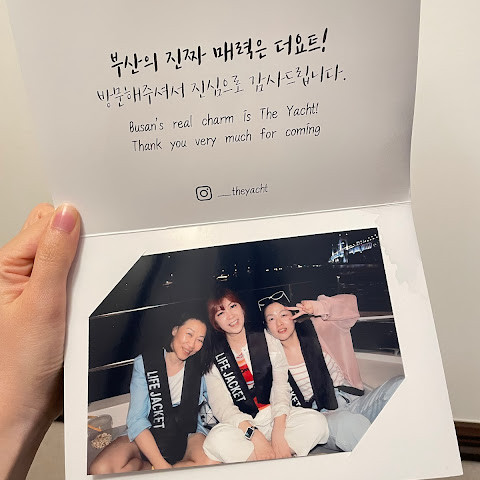 부산의 진짜 매력은 더요트!
방문해주셔서 진심으로 감사드립니다.
Busan's real charm is The Yacht!
Thank you very much for coming
__theyacht
LIFE JACKET
LIFE JACKET
LIFE JACKET